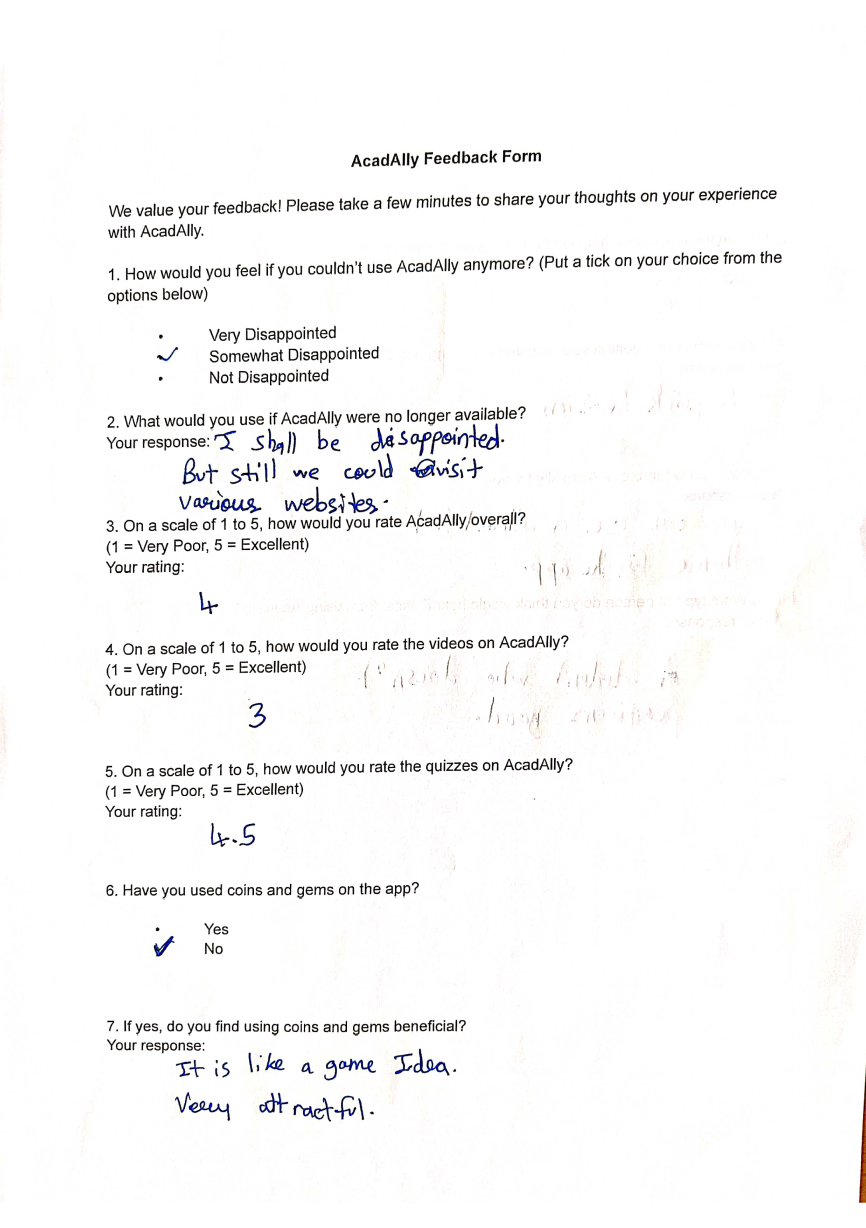 AcadAlly Feedback Form
We value your feedback! Please take a few minutes to share your thoughts on your experience
with AcadAlly.
1. How would you feel if you couldn't use AcadAlly anymore? (Put a tick on your choice from the
options below)
• Very Disappointed
✓ Somewhat Disappointed
• Not Disappointed
2. What would you use if AcadAlly were no longer available?
Your response: I shall be disappointed.
But still we could visit
various websites.
3. On a scale of 1 to 5, how would you rate AcadAlly overall?
(1 = Very Poor, 5 = Excellent)
Your rating:
4
4. On a scale of 1 to 5, how would you rate the videos on AcadAlly?
(1 = Very Poor, 5 = Excellent)
Your rating:
3
5. On a scale of 1 to 5, how would you rate the quizzes on AcadAlly?
(1 = Very Poor, 5 = Excellent)
Your rating:
4.5
6. Have you used coins and gems on the app?
• Yes
✓ No
7. If yes, do you find using coins and gems beneficial?
Your response:
It is like a game Idea.
Very attractful.